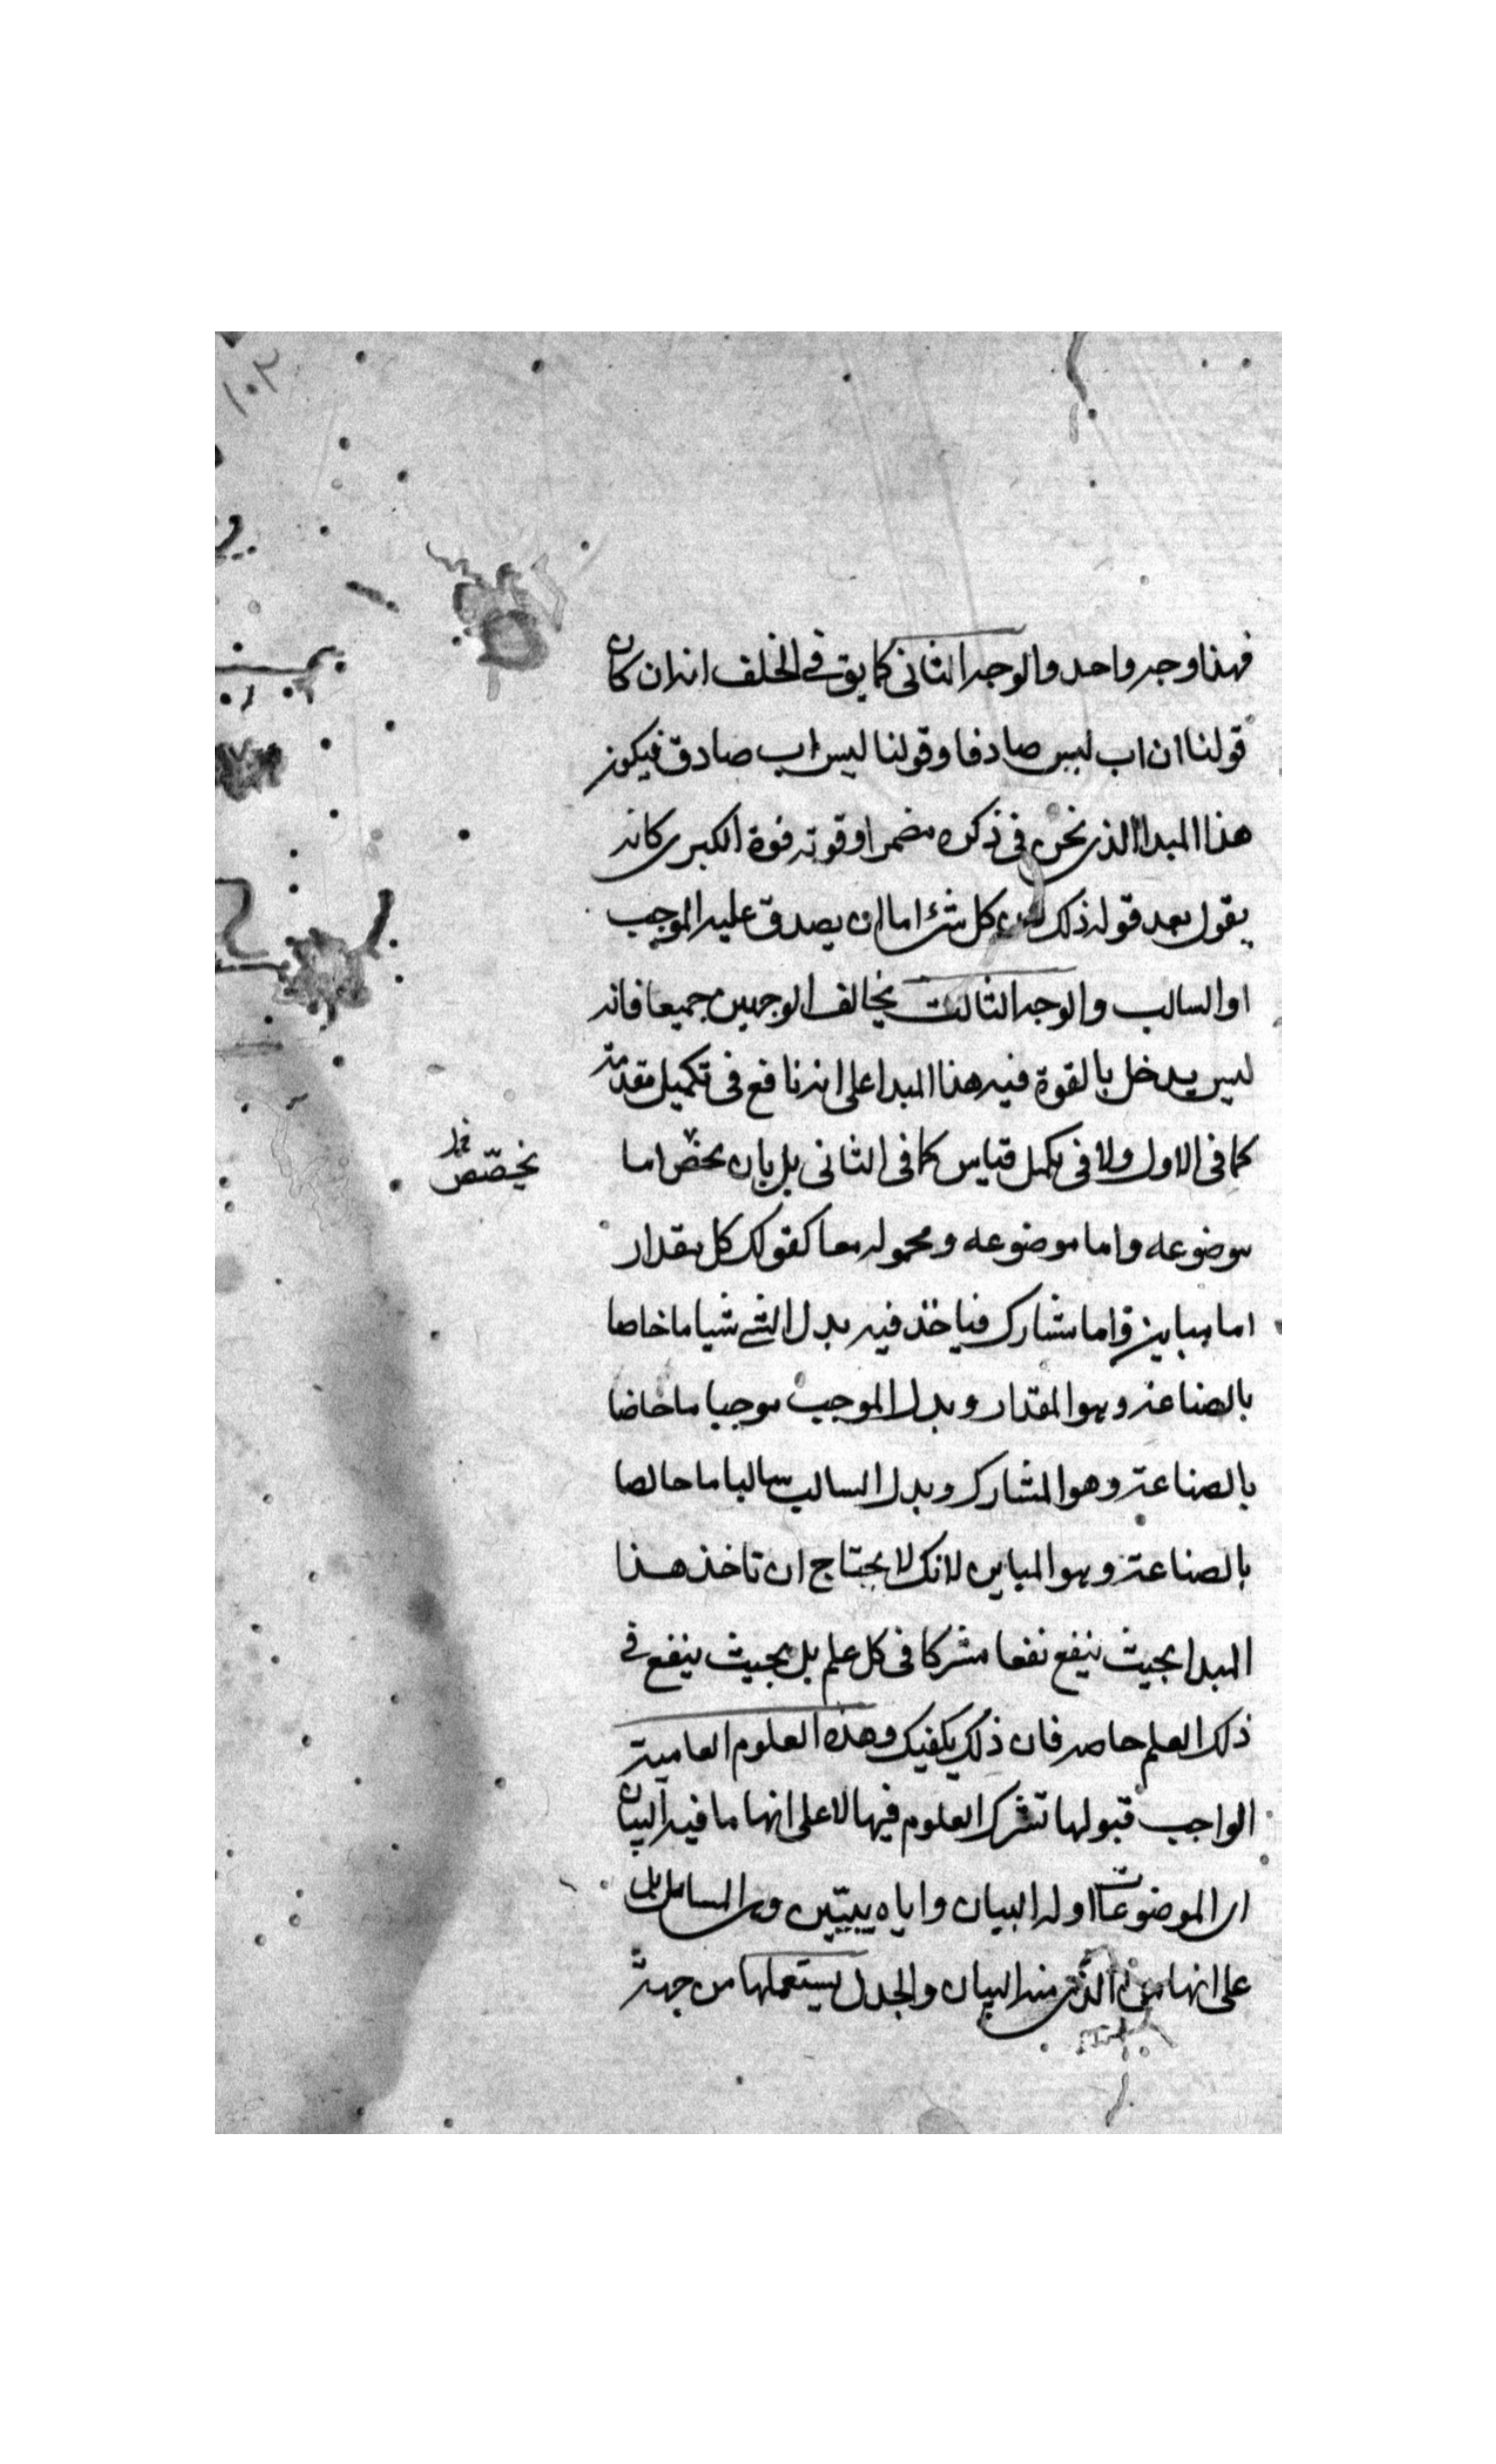 ١٠٢
فهذا وجه واحد والوجه الثانى كما يق فى الخلف انه ان كان
قولنا ان اب ليس صادقا وقولنا ليس اب صادق فيكون
هذا المبدا الذى نحن فى ذكره مضمرا وقوته قوة الكبرى كانه
يقول بعد قوله ذلك لان كل شئ اما ان يصدق عليه الموجب
او السالب والوجه الثالث يخالف الوجهين جميعا فانه
ليس يدخل بالقوة فيه هذا المبدا على انه نافع فى تكميل مقدمة
كما فى الاول ولا فى تكميل قياس كما فى الثانى بل بان يخص اما
يخصّص
موضوعه واما موضوعه ومحموله معا كقولك كل مقدار
اما مباين واما مشارك فياخذ فيه بدل الشئ شيا ما خاصا
بالصناعة وهو المقدار وبدل الموجب موجبا ما خاصا
بالصناعة وهو المشارك وبدل السالب سالبا ما خالصا
بالصناعة وهو المباين لانك لا يحتاج ان تاخذ هذا
المبدا بحيث ينفع نفعا مشركا فى كل علم بل بحيث ينفع فى
ذلك العلم خاصه فان ذلك يكفيك وهذه العلوم العامية
الواجب قبولها تشترك العلوم فيها لا على انها ما فيه البيان
اى الموضوعات او له البيان واياه يبيّن وهى المسائل بل
على انها من الذى منه البيان والجدل يستعملها من جهة